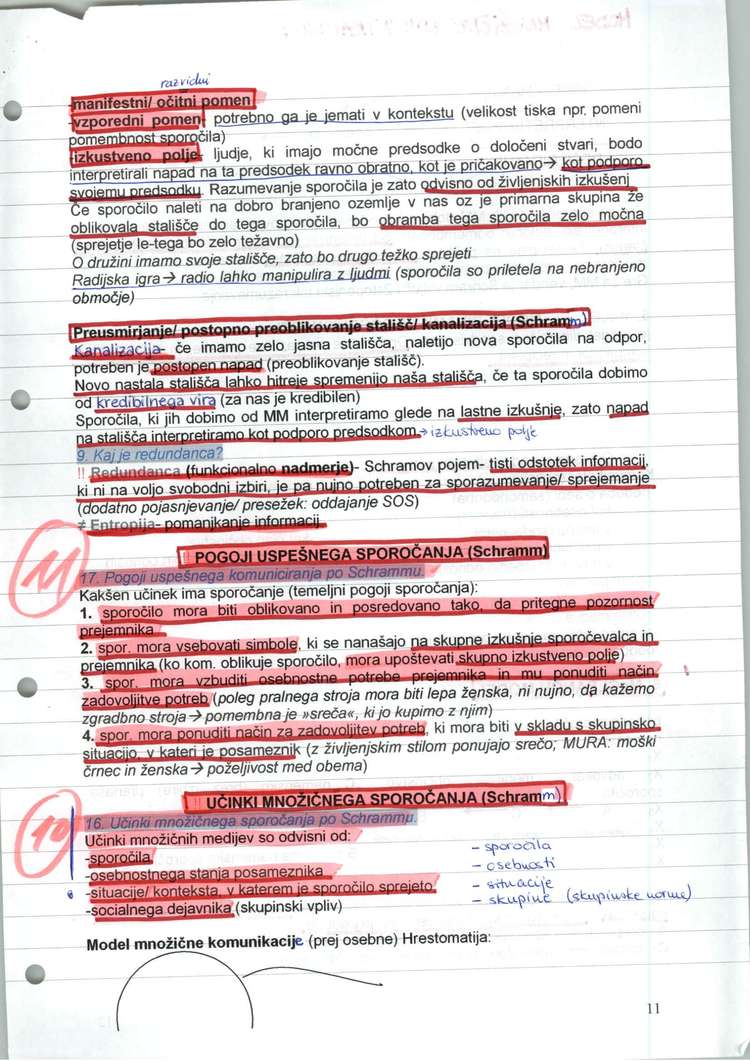 razvidni
-manifestni/ očitni pomen
-vzporedni pomen, potrebno ga je jemati v kontekstu (velikost tiska npr. pomeni
pomembnost sporočila)
-izkustveno polje- ljudje, ki imajo močne predsodke o določeni stvari, bodo
interpretirali napad na ta predsodek ravno obratno, kot je pričakovano→ kot podporo
svojemu predsodku. Razumevanje sporočila je zato odvisno od življenjskih izkušenj
Če sporočilo naleti na dobro branjeno ozemlje v nas oz je primarna skupina že
oblikovala stališče do tega sporočila, bo obramba tega sporočila zelo močna
(sprejetje le-tega bo zelo težavno)
O družini imamo svoje stališče, zato bo drugo težko sprejeti
Radijska igra→ radio lahko manipulira z ljudmi (sporočila so priletela na nebranjeno
območje)
Preusmirjanje/ postopno preoblikovanje stališč/ kanalizacija (Schramm)
Kanalizacija- če imamo zelo jasna stališča, naletijo nova sporočila na odpor,
potreben je postopen napad (preoblikovanje stališč).
Novo nastala stališča lahko hitreje spremenijo naša stališča, če ta sporočila dobimo
od kredibilnega vira (za nas je kredibilen)
Sporočila, ki jih dobimo od MM interpretiramo glede na lastne izkušnje, zato napad
na stališča interpretiramo kot podporo predsodkom → izkustveno polje
9. Kaj je redundanca?
!! Redundanca (funkcionalno nadmerje)- Schramov pojem- tisti odstotek informacij,
ki ni na voljo svobodni izbiri, je pa nujno potreben za sporazumevanje/ sprejemanje
(dodatno pojasnjevanje/ presežek: oddajanje SOS)
≠ Entropija- pomanjkanje informacij
11
!! POGOJI USPEŠNEGA SPOROČANJA (Schramm)
17. Pogoji uspešnega komuniciranja po Schrammu.
Kakšen učinek ima sporočanje (temeljni pogoji sporočanja):
1. sporočilo mora biti oblikovano in posredovano tako, da pritegne pozornost
prejemnika
2. spor. mora vsebovati simbole, ki se nanašajo na skupne izkušnje sporočevalca in
prejemnika (ko kom. oblikuje sporočilo, mora upoštevati skupno izkustveno polje)
3. spor. mora vzbuditi osebnostne potrebe prejemnika in mu ponuditi način
zadovoljitve potreb (poleg pralnega stroja mora biti lepa ženska, ni nujno, da kažemo
zgradbno stroja→ pomembna je »sreča«, ki jo kupimo z njim)
4. spor. mora ponuditi način za zadovoljitev potreb, ki mora biti v skladu s skupinsko
situacijo, v kateri je posameznik (z življenjskim stilom ponujajo srečo; MURA: moški
črnec in ženska→ poželjivost med obema)
10
!! UČINKI MNOŽIČNEGA SPOROČANJA (Schramm)
16. Učinki množičnega sporočanja po Schrammu.
Učinki množičnih medijev so odvisni od:
-sporočila – sporočila
-osebnostnega stanja posameznika – osebnosti
-situacije/ konteksta, v katerem je sporočilo sprejeto – situacije
-socialnega dejavnika (skupinski vpliv) – skupine (skupinske norme)
Model množične komunikacije (prej osebne) Hrestomatija:
11